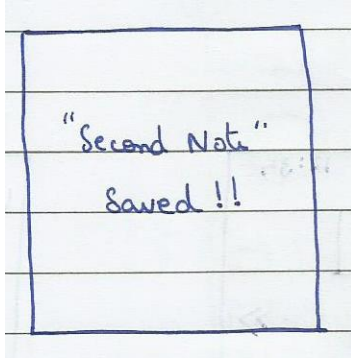 "Second Note"
Saved !!